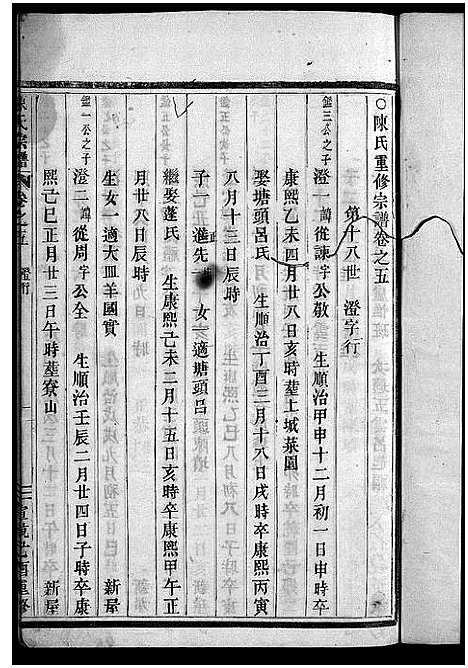 ○陳氏重修宗譜卷之五
第十八世 澄字行
鑑三公之子 澄一 諱從諫字公敬 生順治甲申十二月初一日申時卒
康熙乙未四月廿八日亥時塟上城菜園
娶塘頭呂氏 生順治丁酉三月十八日戌時卒康熙丙寅
八月十三日辰時
子一 進先 女一適塘頭呂
繼娶蓬氏 生康熙己未二月十五日亥時卒康熙甲午正
月廿八日辰時
生女一適大皿羊國賓 新屋
鑑一公之子 澄二 諱從周字公全 生順治壬辰二月廿四日子時卒康
熙己巳正月廿三日午時塟寮山 新屋
陳氏宗譜 卷之五